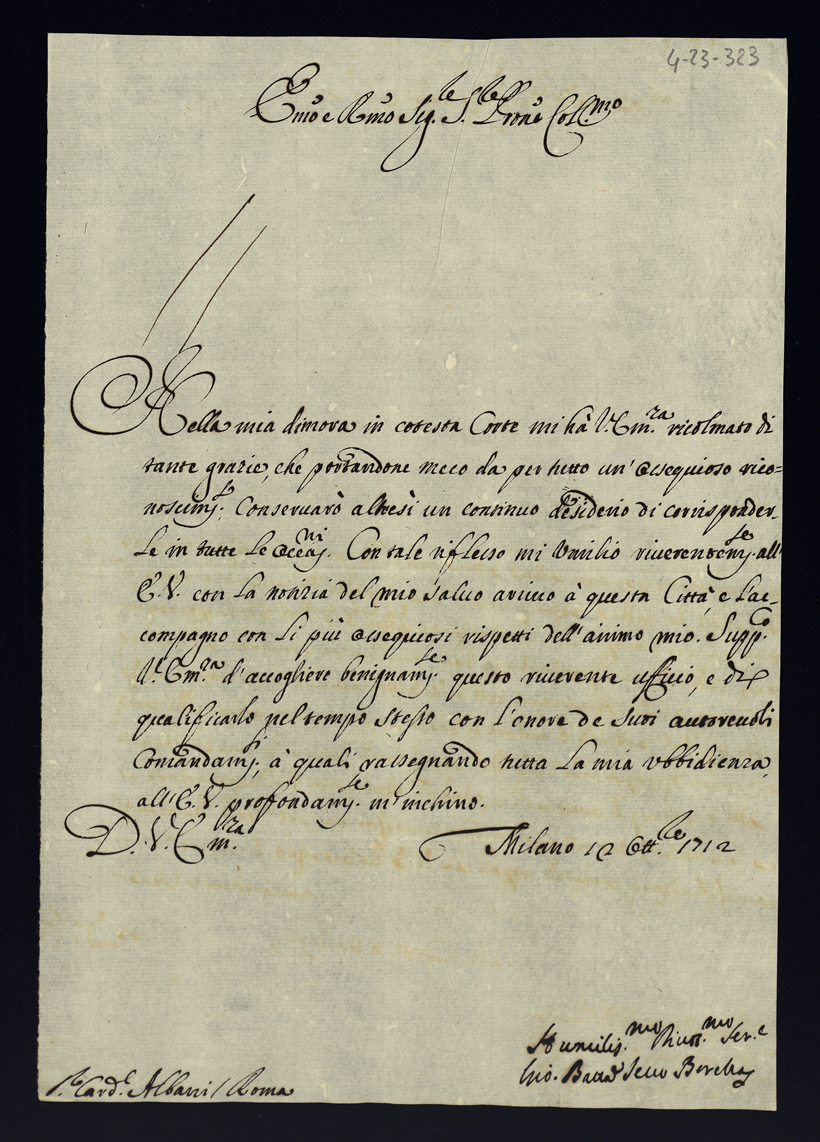 4-23-323
Emo e Rmo Sig.re S.re Prone Coll.mo
Nella mia dimora in cotesta Corte mi hà V. Em.za ricolmato di
tante grazie, che portandone meco da per tutto un' ossequioso rico=
noscim.to; Conseruarò altresì un continuo desiderio di corrisponder-
Le in tutte Le occ.ni. Con tale riflesso mi Umilio riverentem.te all'
E. V. con La notizia del mio saluo arriuo à questa Città, e L'ac-
compagno con Li più ossequiosi rispetti dell'animo mio. Supp.co
V. Em.za d'accogliere benignam.te questo riuerente ufficio, e di
qualificarlo nel tempo stesso con L'onore de Suoi autoreuoli
Comandam.ti, à quali rassegnando tutta La mia ubbidienza,
all'E. V. profondam.te m'inchino.
D. V. Em.za Milano 12 Ott.re 1712
Humiliss.mo Diuot.mo Ser.e
Gio. Batta
S.r Card.l Albani / Roma